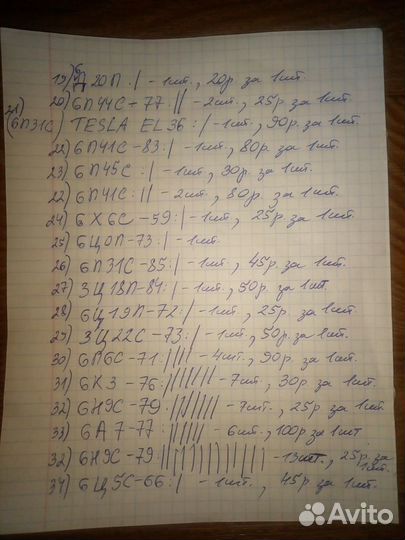 19) 6Д20П: | - 1шт., 20р. за 1шт.
20) 6П44С-77: || - 2шт., 25р за 1шт.
21) (6П31С) TESLA EL36: | - 1шт., 90р. за 1шт.
22) 6П41С-83: | - 1шт., 80р. за 1шт.
23) 6П45С: | - 1шт., 30р. за 1шт.
22) 6П41С: || - 2шт., 80р. за 1шт.
24) 6Х6С-59: | - 1шт., 25р за 1шт.
25) 6Ц0П-73: | - 1шт.
26) 6П31С-85: | - 1шт., 45р. за 1шт.
27) 3Ц18П-84: | - 1шт., 50р. за 1шт
28) 6Ц19П-72: | - 1шт., 25р. за 1шт.
29) 3Ц22С-73: | - 1шт., 50р. за 1шт.
30) 6П6С-71: |||| - 4шт., 90р. за 1шт.
31) 6К3-76: ||||||| - 7шт., 30р за 1шт.
32) 6Н9С-79: ||||||| - 7шт., 25р за 1шт.
33) 6А7-77: |||||| - 6шт., 100р за 1шт
32) 6Н9С-79: ||||||||||||| - 13шт., 25р. за 1шт.
34) 6Ц5С-66: | - 1шт., 45р за 1шт.
Avito